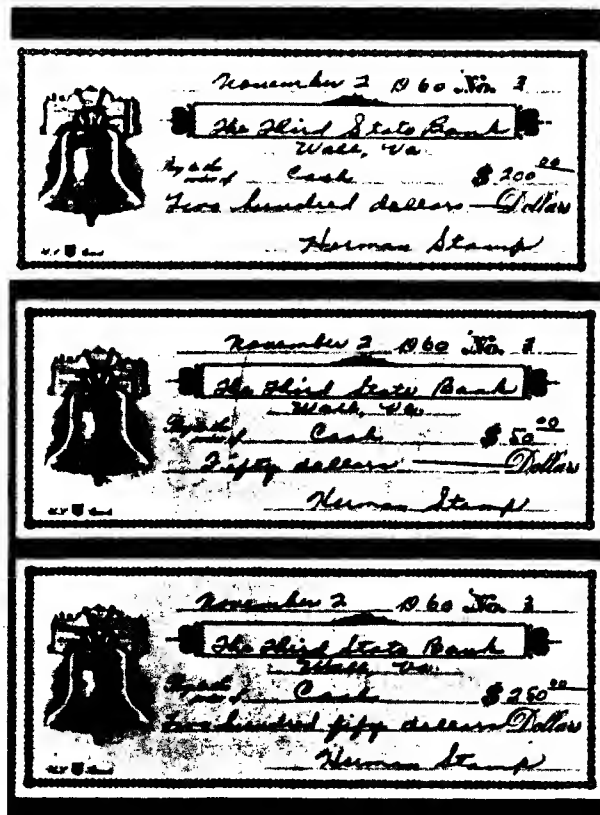 November 2 1960 No. 3
The Third State Bank
Wall, Va.
Pay to the
order of Cash $ 200 00
Two hundred dollars Dollars
Herman Stamp
November 2 1960 No. 3
The Third State Bank
Wall, Va.
Pay to the
order of Cash $ 50 00
Fifty dollars Dollars
Herman Stamp
November 2 1960 No. 3
The Third State Bank
Wall, Va.
Pay to the
order of Cash $ 250 00
Two hundred fifty dollars Dollars
Herman Stamp